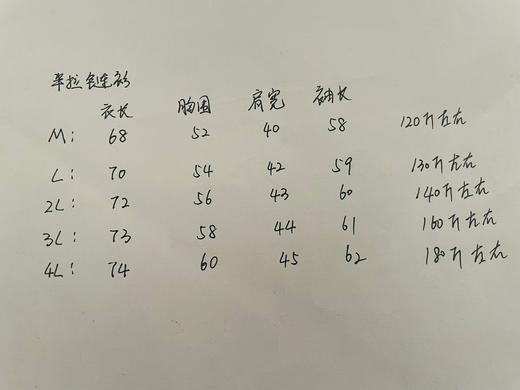 半拉链衫
衣长 胸围 肩宽 袖长
M: 68 52 40 58 120斤左右
L: 70 54 42 59 130斤左右
2L: 72 56 43 60 140斤左右
3L: 73 58 44 61 160斤左右
4L: 74 60 45 62 180斤左右